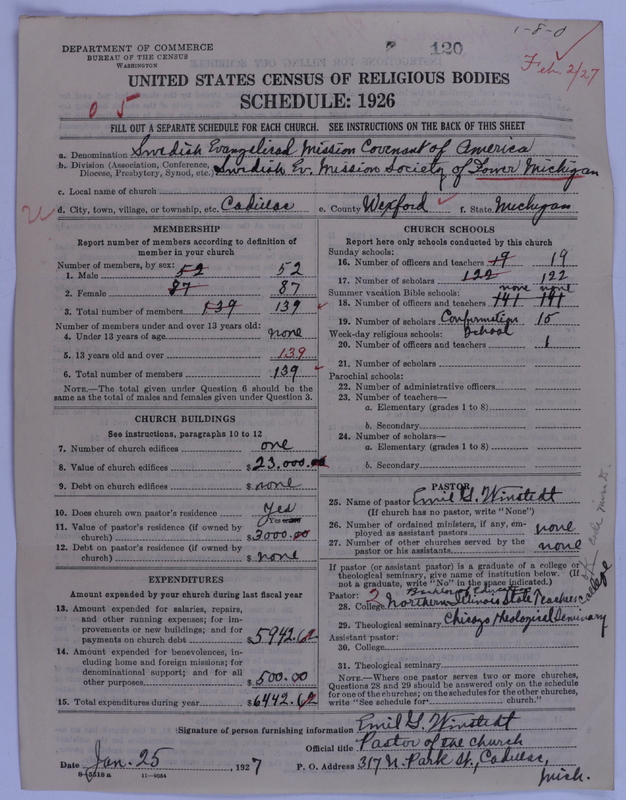 1-8-0
DEPARTMENT OF COMMERCE
BUREAU OF THE CENSUS
WASHINGTON
120
Feb 2/27
UNITED STATES CENSUS OF RELIGIOUS BODIES
SCHEDULE: 1926
0 5
FILL OUT A SEPARATE SCHEDULE FOR EACH CHURCH. SEE INSTRUCTIONS ON THE BACK OF THIS SHEET
a. Denomination Swedish Evangelical Mission Covenant of America
b. Division (Association, Conference, Diocese, Presbytery, Synod, etc.) Swedish Ev. Mission Society of Lower Michigan
c. Local name of church
d. City, town, village, or township, etc. Cadillac e. County Wexford f. State Michigan
MEMBERSHIP
Report number of members according to definition of
member in your church
Number of members, by sex:
1. Male 52 52
2. Female 87 87
3. Total number of members 139 139
Number of members under and over 13 years old:
4. Under 13 years of age none
5. 13 years old and over 139
6. Total number of members 139
NOTE.—The total given under Question 6 should be the
same as the total of males and females given under Question 3.
CHURCH BUILDINGS
See instructions, paragraphs 10 to 12
7. Number of church edifices one
8. Value of church edifices $ 23,000.00
9. Debt on church edifices $ none
10. Does church own pastor's residence? Yes
11. Value of pastor's residence (if owned by
church) $ 3000.00
12. Debt on pastor's residence (if owned by
church) $ none
EXPENDITURES
Amount expended by your church during last fiscal year
13. Amount expended for salaries, repairs,
and other running expenses; for im-
provements or new buildings; and for
payments on church debt $ 5942.62
14. Amount expended for benevolences, in-
cluding home and foreign missions; for
denominational support; and for all
other purposes $ 500.00
15. Total expenditures during year $ 6442.62
CHURCH SCHOOLS
Report here only schools conducted by this church
Sunday schools:
16. Number of officers and teachers 19 19
17. Number of scholars 122 122
Summer vacation Bible schools: none none
18. Number of officers and teachers 141 141
19. Number of scholars Confirmation 15
Week-day religious schools: School
20. Number of officers and teachers 1
21. Number of scholars
Parochial schools:
22. Number of administrative officers
23. Number of teachers—
a. Elementary (grades 1 to 8)
b. Secondary
24. Number of scholars—
a. Elementary (grades 1 to 8)
b. Secondary
PASTOR
25. Name of pastor Emil G. Winstedt
(If church has no pastor, write "None")
26. Number of ordained ministers, if any, em-
ployed as assistant pastors none
27. Number of other churches served by the
pastor or his assistants none
If pastor (or assistant pastor) is a graduate of a college or
theological seminary, give name of institution below. (If
not a graduate, write "No" in the space indicated.)
Pastor: Bachelor of Education
28. College Northern Illinois State Teachers College
29. Theological seminary Chicago Theological Seminary
Assistant pastor:
30. College
31. Theological seminary
NOTE.—Where one pastor serves two or more churches,
Questions 28 and 29 should be answered only on the schedule
for one of the churches; on the schedules for the other churches,
write "See schedule for church."
Signature of person furnishing information Emil G. Winstedt
Official title Pastor of the church
Date Jan. 25, 1927 P. O. Address 317 N. Park St., Cadillac,
Mich.
8-5518 a 11-9054